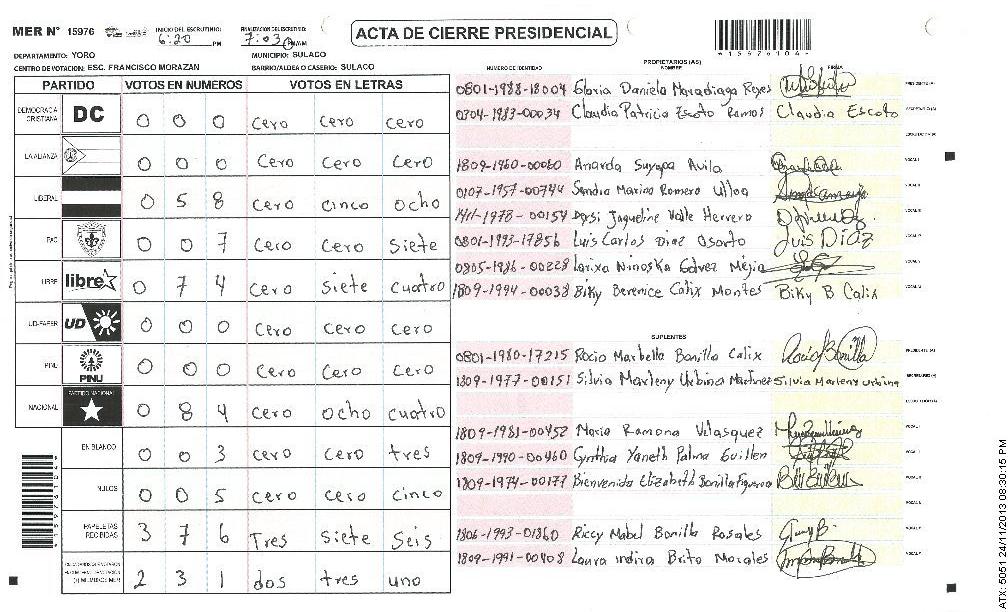 MER Nº 15976
INICIO DEL ESCRUTINIO: 6:20 PM
FINALIZACION DEL ESCRUTINIO: 7:03 PM/AM
ACTA DE CIERRE PRESIDENCIAL
DEPARTAMENTO: YORO
MUNICIPIO: SULACO
CENTRO DE VOTACION: ESC. FRANCISCO MORAZAN
BARRIO/ALDEA O CASERIO: SULACO
PARTIDO VOTOS EN NUMEROS VOTOS EN LETRAS
DEMOCRACIA CRISTIANA DC 0 0 0 Cero Cero Cero
LA ALIANZA 0 0 0 Cero Cero Cero
LIBERAL 0 5 8 Cero Cinco Ocho
PAC 0 0 7 Cero Cero Siete
LIBRE libre 0 7 4 Cero Siete Cuatro
UD-FAPER UD 0 0 0 Cero Cero Cero
PINU PINU 0 0 0 Cero Cero Cero
NACIONAL PARTIDO NACIONAL 0 8 4 Cero Ocho Cuatro
EN BLANCO 0 0 3 Cero Cero tres
NULOS 0 0 5 Cero Cero Cinco
PAPELETAS RECIBIDAS 3 7 6 Tres Siete Seis
2 3 1 dos tres uno
PROPIETARIOS (AS)
NUMERO DE IDENTIDAD NOMBRE FIRMA
0801-1988-18004 Gloria Daniela Maradiaga Reyes
0304-1983-00034 Claudia Patricia Escoto Ramos Claudia Escoto
1809-1960-00060 Ananda Suyapa Avila
0107-1957-00744 Sandra Marina Romero Ulloa
1411-1978-00154 Dorsi Jaqueline Valle Herrera
0801-1993-17856 Luis Carlos Diaz Osorto Luis Diaz
0805-1986-00228 Larixa Ninoska Galvez Mejia
1809-1994-00038 Biky Berenice Calix Montes Biky B Calix
SUPLENTES
0801-1980-17215 Rocio Marbella Bonilla Calix Rocio Bonilla
1809-1977-00151 Silvia Marleny Urbina Martinez Silvia Marleny Urbina
1809-1981-00452 Maria Ramona Velasquez
1809-1990-00460 Cynthia Yaneth Palma Guillen
1809-1974-00177 Bienvenida Elizabeth Bonilla Figueroa
1806-1993-01860 Riccy Mabel Bonilla Rosales
1809-1991-00408 Laura Indira Brito Morales
ATX: 5051 24/11/2013 08:30:15 PM